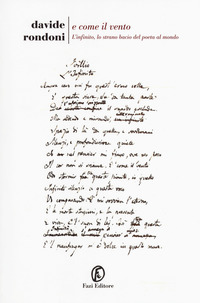 davide
rondoni
e come il vento
L'infinito, lo strano bacio del poeta al mondo
Idillio
L'Infinito
Sempre caro mi fu quest'ermo colle,
E questa siepe, che da tanta parte
il guardo esclude.
Ma sedendo e mirando,
Spazio di là da quella, e sovrumani
Silenzi, e profondissima quiete
Io nel pensier mi fingo, ove per poco
Il cor non si spaura. E come il vento
Odo stormir fra queste piante, io quello
Infinito silenzio a questa voce
Vo comparando: e mi sovvien l'eterno,
E le morte stagioni, e la presente
E viva, e 'l suon di lei. Così tra questa
E 'l naufragar m'è dolce in questo mare.
Fazi Editore